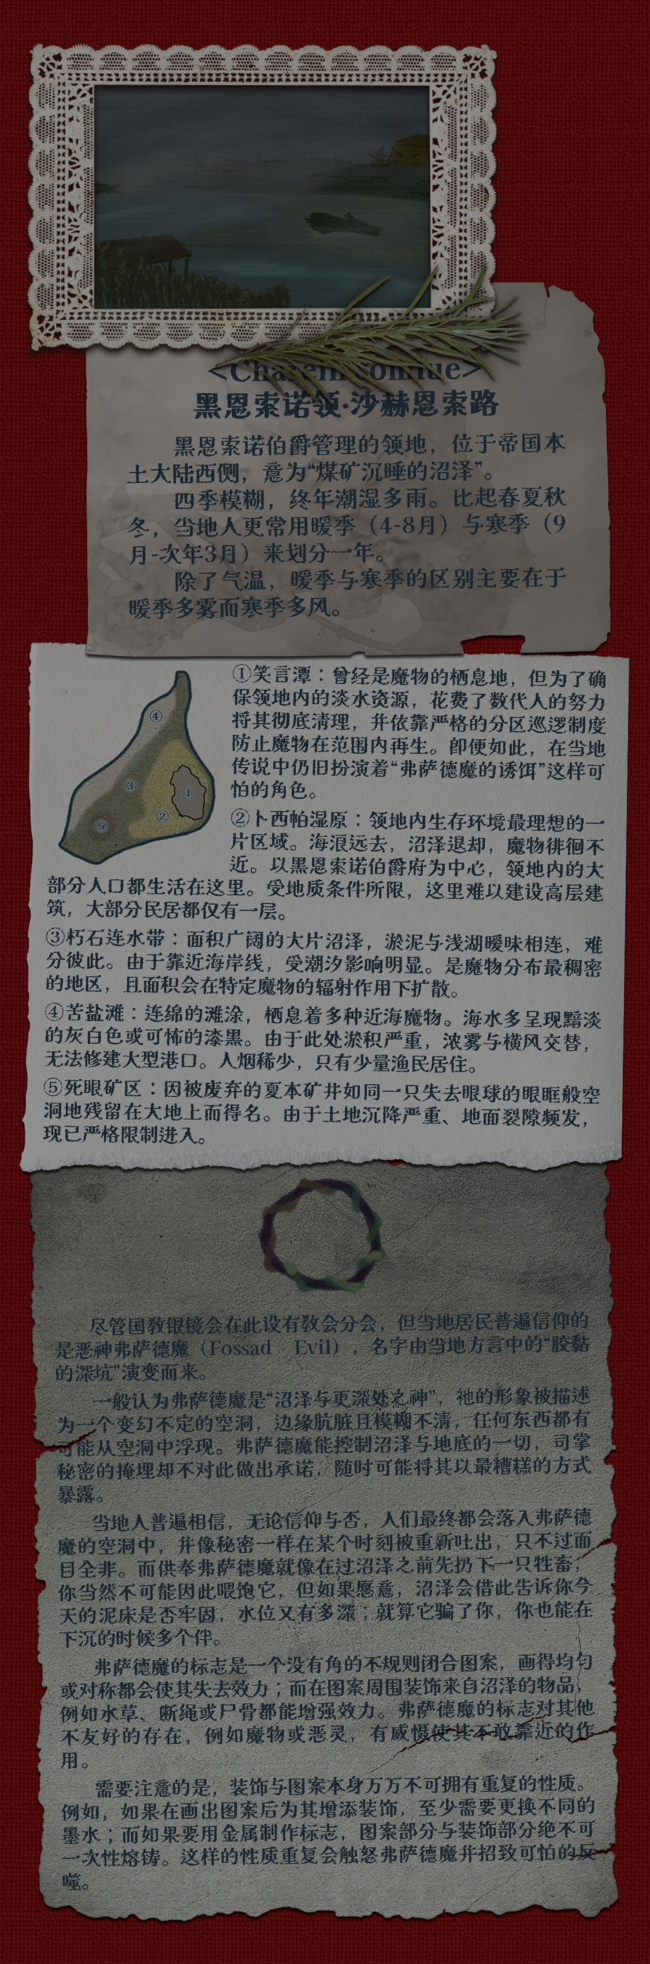 黑恩索诺领·沙赫恩索路
黑恩索诺伯爵管理的领地，位于帝国本
土大陆西侧，意为“煤矿沉睡的沼泽”。
四季模糊，终年潮湿多雨。比起春夏秋
冬，当地人更常用暖季（4-8月）与寒季（9
月-次年3月）来划分一年。
除了气温，暖季与寒季的区别主要在于
暖季多雾而寒季多风。
④
③
①
②
⑤
①笑言潭：曾经是魔物的栖息地，但为了确
保领地内的淡水资源，花费了数代人的努力
将其彻底清理，并依靠严格的分区巡逻制度
防止魔物在范围内再生。即便如此，在当地
传说中仍旧扮演着“弗萨德魔的诱饵”这样可
怕的角色。
②卜西帕湿原：领地内生存环境最理想的一
片区域。海浪远去，沼泽退却，魔物徘徊不
近。以黑恩索诺伯爵府为中心，领地内的大
部分人口都生活在这里。受地质条件所限，这里难以建设高层建
筑，大部分民居都仅有一层。
③朽石连水带：面积广阔的大片沼泽，淤泥与浅湖暧昧相连，难
分彼此。由于靠近海岸线，受潮汐影响明显。是魔物分布最稠密
的地区，且面积会在特定魔物的辐射作用下扩散。
④苦盐滩：连绵的滩涂，栖息着多种近海魔物。海水多呈现黯淡
的灰白色或可怖的漆黑。由于此处淤积严重，浓雾与横风交替，
无法修建大型港口。人烟稀少，只有少量渔民居住。
⑤死眼矿区：因被废弃的夏本矿井如同一只失去眼球的眼眶般空
洞地残留在大地上而得名。由于土地沉降严重、地面裂隙频发，
现已严格限制进入。
尽管国教银镜会在此设有教会分会，但当地居民普遍信仰的
是恶神弗萨德魔（Fossad Evil），名字由当地方言中的“胶黏
的深坑”演变而来。
一般认为弗萨德魔是“沼泽与更深处之神”，祂的形象被描述
为一个变幻不定的空洞，边缘肮脏且模糊不清，任何东西都有
可能从空洞中浮现。弗萨德魔能控制沼泽与地底的一切，司掌
秘密的掩埋却不对此做出承诺，随时可能将其以最糟糕的方式
暴露。
当地人普遍相信，无论信仰与否，人们最终都会落入弗萨德
魔的空洞中，并像秘密一样在某个时刻被重新吐出，只不过面
目全非。而供奉弗萨德魔就像在过沼泽之前先扔下一只牲畜，
你当然不可能因此喂饱它，但如果愿意，沼泽会借此告诉你今
天的泥床是否牢固，水位又有多深；就算它骗了你，你也能在
下沉的时候多个伴。
弗萨德魔的标志是一个没有角的不规则闭合图案，画得均匀
或对称都会使其失去效力；而在图案周围装饰来自沼泽的物品，
例如水草、断绳或尸骨都能增强效力。弗萨德魔的标志对其他
不友好的存在，例如魔物或恶灵，有威慑使其不敢靠近的作
用。
需要注意的是，装饰与图案本身万万不可拥有重复的性质。
例如，如果在画出图案后为其增添装饰，至少需要更换不同的
墨水；而如果要用金属制作标志，图案部分与装饰部分绝不可
一次性熔铸。这样的性质重复会触怒弗萨德魔并招致可怕的反
噬。